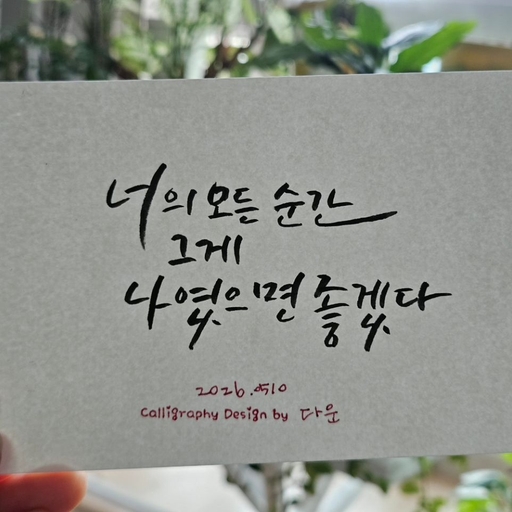 너의 모든 순간
그게
나였으면 좋겠다
2026.0510
Calligraphy Design by 다운